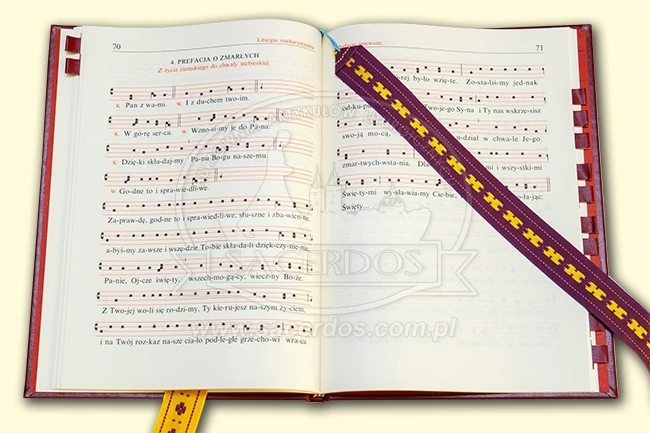 70
Liturgia eucharystyczna
4. PREFACJA O ZMARŁYCH
Z życia ziemskiego do chwały niebieskiej
K. Pan z wa-mi. W. I z du-chem two-im.
K. W gó-rę ser-ca. W. Wzno-si-my je do Pa-na.
K. Dzię-ki skła-daj-my Pa-nu Bo-gu na-sze-mu.
W. Go-dne to i spra-wie-dli-we.
Za-praw-dę, god-ne to i spra-wied-li-we, słu-szne i zba-wien-ne,
a-byś-my za-wsze i wszę-dzie To-bie skła-da-li dzięk-czy-nie-nie,
Pa-nie, Oj-cze świę-ty, wszech-mo-gą-cy, wiecz-ny Bo-że.
Z Two-jej wo-li się ro-dzi-my, Ty kie-ru-jesz na-szym ży-ciem,
i na Twój roz-kaz na-sze cia-ło pod-le-głe grze-cho-wi wra-ca
71
by-ło wzię-te. Zo-sta-liś-my jed-nak
od-ku-pie- Two-je-go Sy-na i Ty nas wskrze-sisz
swo-ją mo-cą, u-dział w chwa-le Je-go
zmar-twych-wsta-nia. Dla- i wszy-stki-mi
Świę-ty-mi wy-sła-wia-my Cie-bie,
Święty...
SACERDOS
www.sacerdos.com.pl